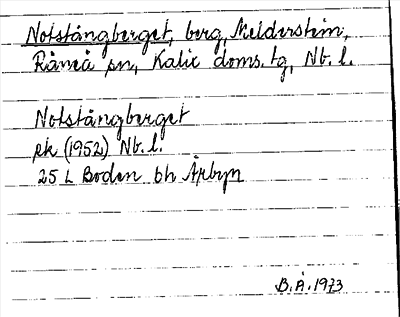 Notstångberget, berg, Melderstein,
Råneå sn, Kalix doms. tg, Nb. l.
Notstångberget
ek (1952) Nb. l.
25 L Boden bh Årbyn
B.Å. 1973